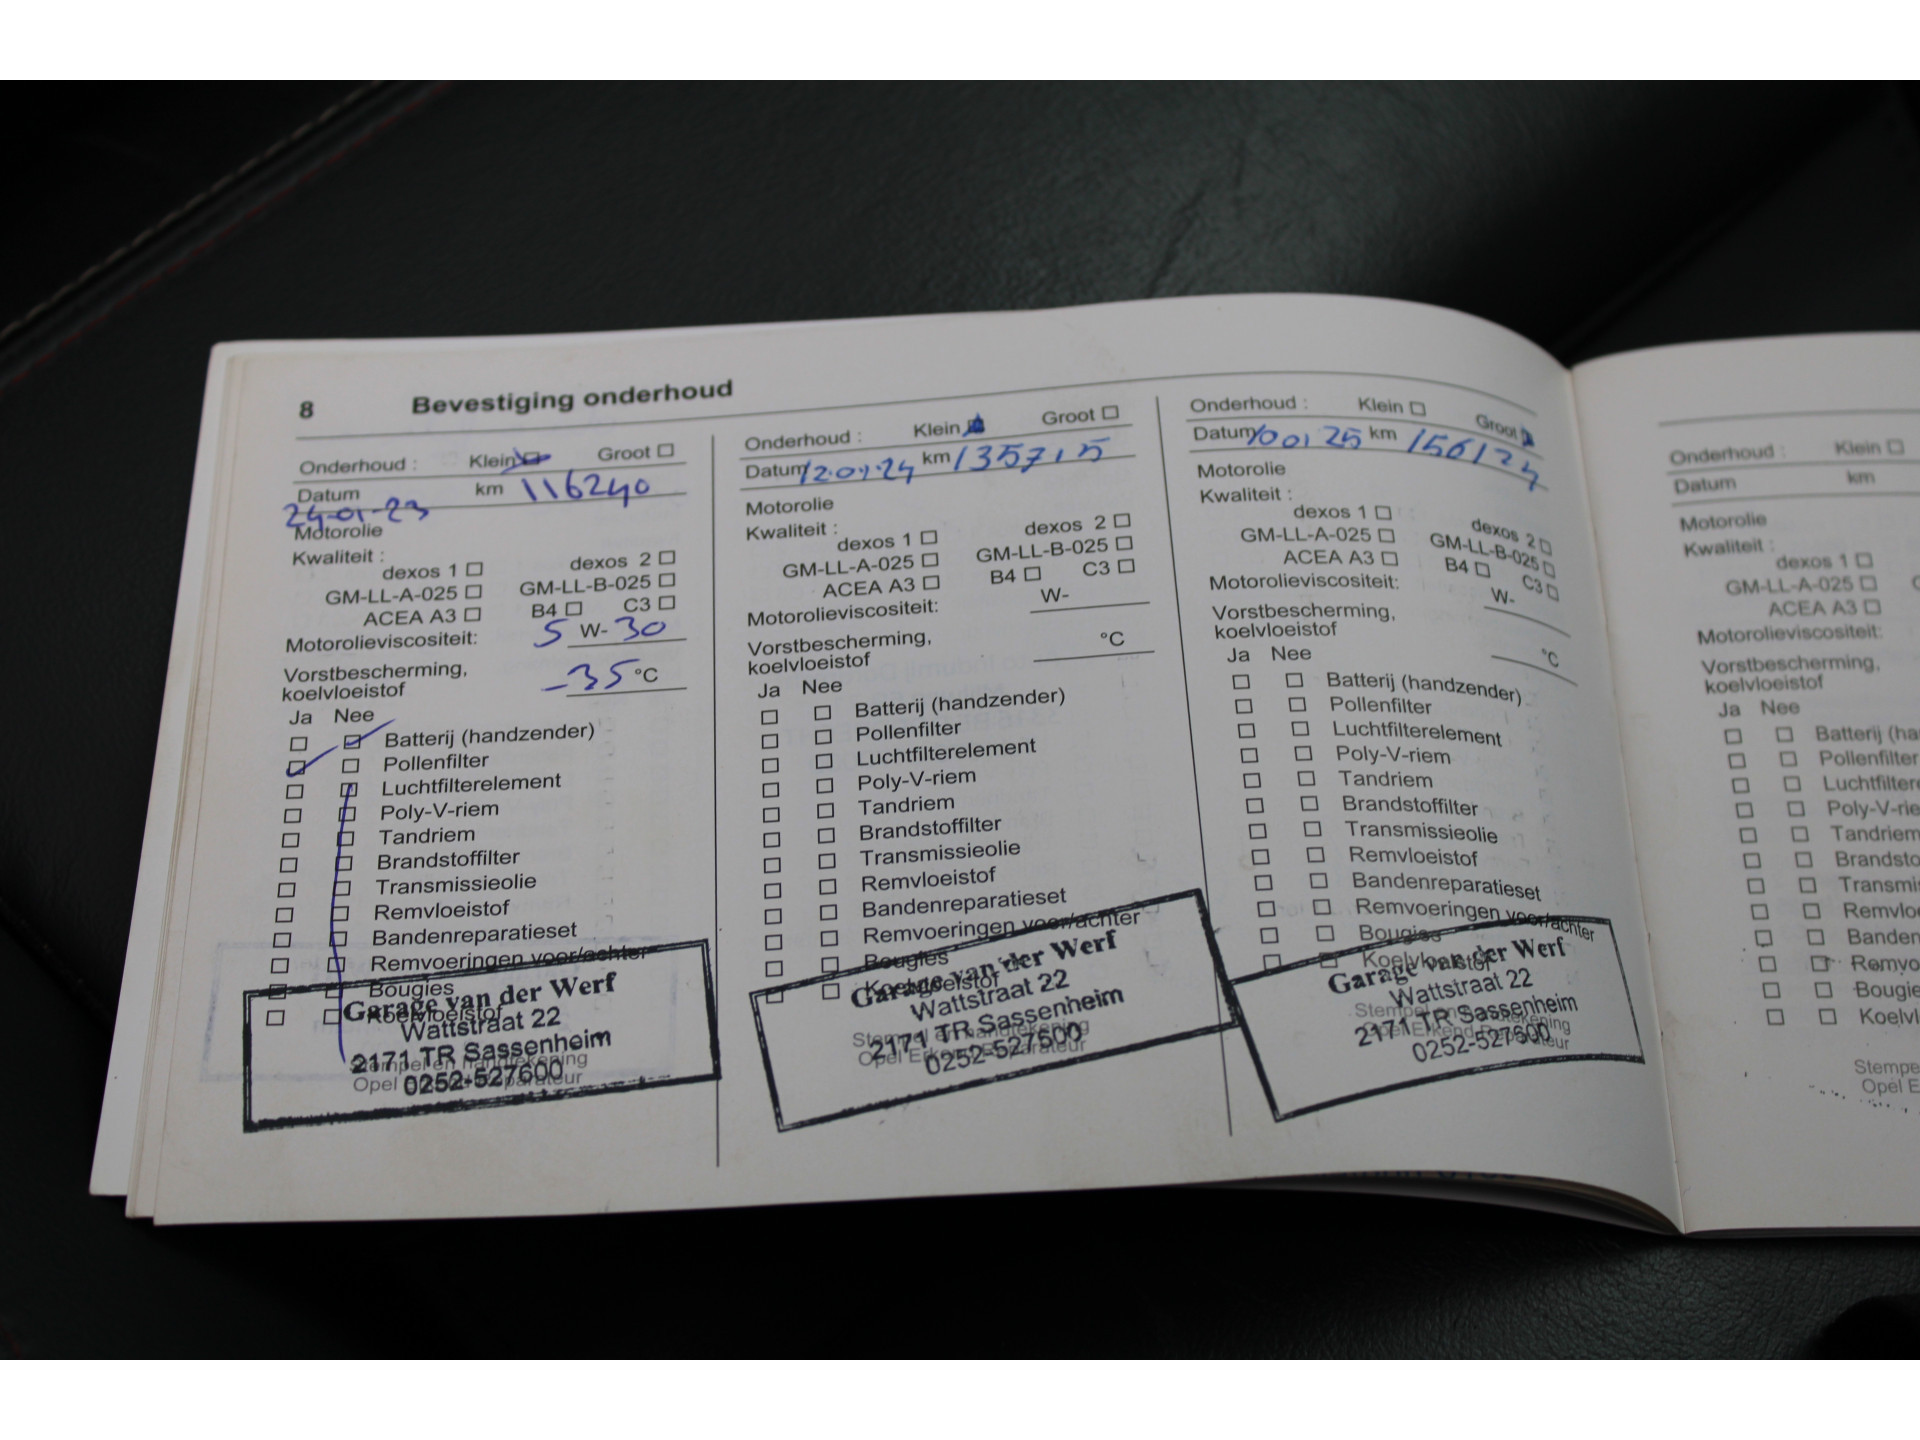 8 Bevestiging onderhoud
Onderhoud : Klein Groot
Datum km 116240
24-01-23
Motorolie
Kwaliteit :
dexos 1 dexos 2
GM-LL-A-025 GM-LL-B-025
ACEA A3 B4 C3
Motorolieviscositeit: 5 W- 30
Vorstbescherming,
koelvloeistof -35 °C
Ja Nee
Batterij (handzender)
Pollenfilter
Luchtfilterelement
Poly-V-riem
Tandriem
Brandstoffilter
Transmissieolie
Remvloeistof
Bandenreparatieset
Remvoeringen voor/achter
Bougies
Koelvloeistof
Stempel en handtekening
Opel Erkend Reparateur
Garage van der Werf
Wattstraat 22
2171 TR Sassenheim
0252-527600
Onderhoud : Klein Groot
Datum 12.01.24 km 135715
Motorolie
Kwaliteit :
dexos 1 dexos 2
GM-LL-A-025 GM-LL-B-025
ACEA A3 B4 C3
Motorolieviscositeit: W-
Vorstbescherming,
koelvloeistof °C
Ja Nee
Batterij (handzender)
Pollenfilter
Luchtfilterelement
Poly-V-riem
Tandriem
Brandstoffilter
Transmissieolie
Remvloeistof
Bandenreparatieset
Remvoeringen voor/achter
Bougies
Koelvloeistof
Stempel en handtekening
Opel Erkend Reparateur
Garage van der Werf
Wattstraat 22
2171 TR Sassenheim
0252-527600
Onderhoud : Klein Groot
Datum 10 01 25 km 156124
Motorolie
Kwaliteit :
dexos 1 dexos 2
GM-LL-A-025 GM-LL-B-025
ACEA A3 B4 C3
Motorolieviscositeit: W-
Vorstbescherming,
koelvloeistof °C
Ja Nee
Batterij (handzender)
Pollenfilter
Luchtfilterelement
Poly-V-riem
Tandriem
Brandstoffilter
Transmissieolie
Remvloeistof
Bandenreparatieset
Remvoeringen voor/achter
Bougies
Koelvloeistof
Stempel en handtekening
Opel Erkend Reparateur
Garage van der Werf
Wattstraat 22
2171 TR Sassenheim
0252-527600
Onderhoud : Klein
Datum km
Motorolie
Kwaliteit :
dexos 1
GM-LL-A-025 GM
ACEA A3
Motorolieviscositeit:
Vorstbescherming,
koelvloeistof
Ja Nee
Batterij (ha
Pollenfilter
Luchtfiltere
Poly-V-rie
Tandriem
Brandsto
Transmis
Remvlo
Banden
Remvo
Bougie
Koelvl
Stempe
Opel E